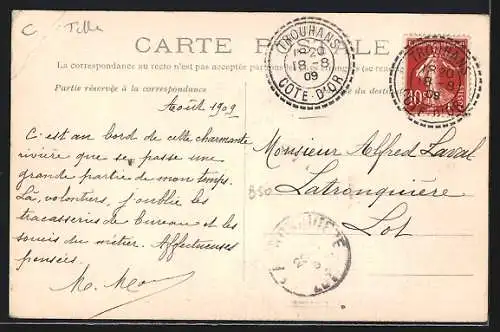 C. Tille
CARTE POSTALE
La correspondance au recto n'est pas acceptée par
Partie réservée à la correspondance
du destin
TROUHANS
18 20
18 - 8
09
COTE-D'OR
TROUHANS
20
8
09
10
Août 1909
C'est au bord de cette charmante
rivière que se passe une
grande partie de mon temps.
Là, volontiers, j'oublie les
tracasseries de bureau et les
soucis du métier. Affectueuses
pensées.
Monsieur Alfred Laval
Latronquière
Lot
B50